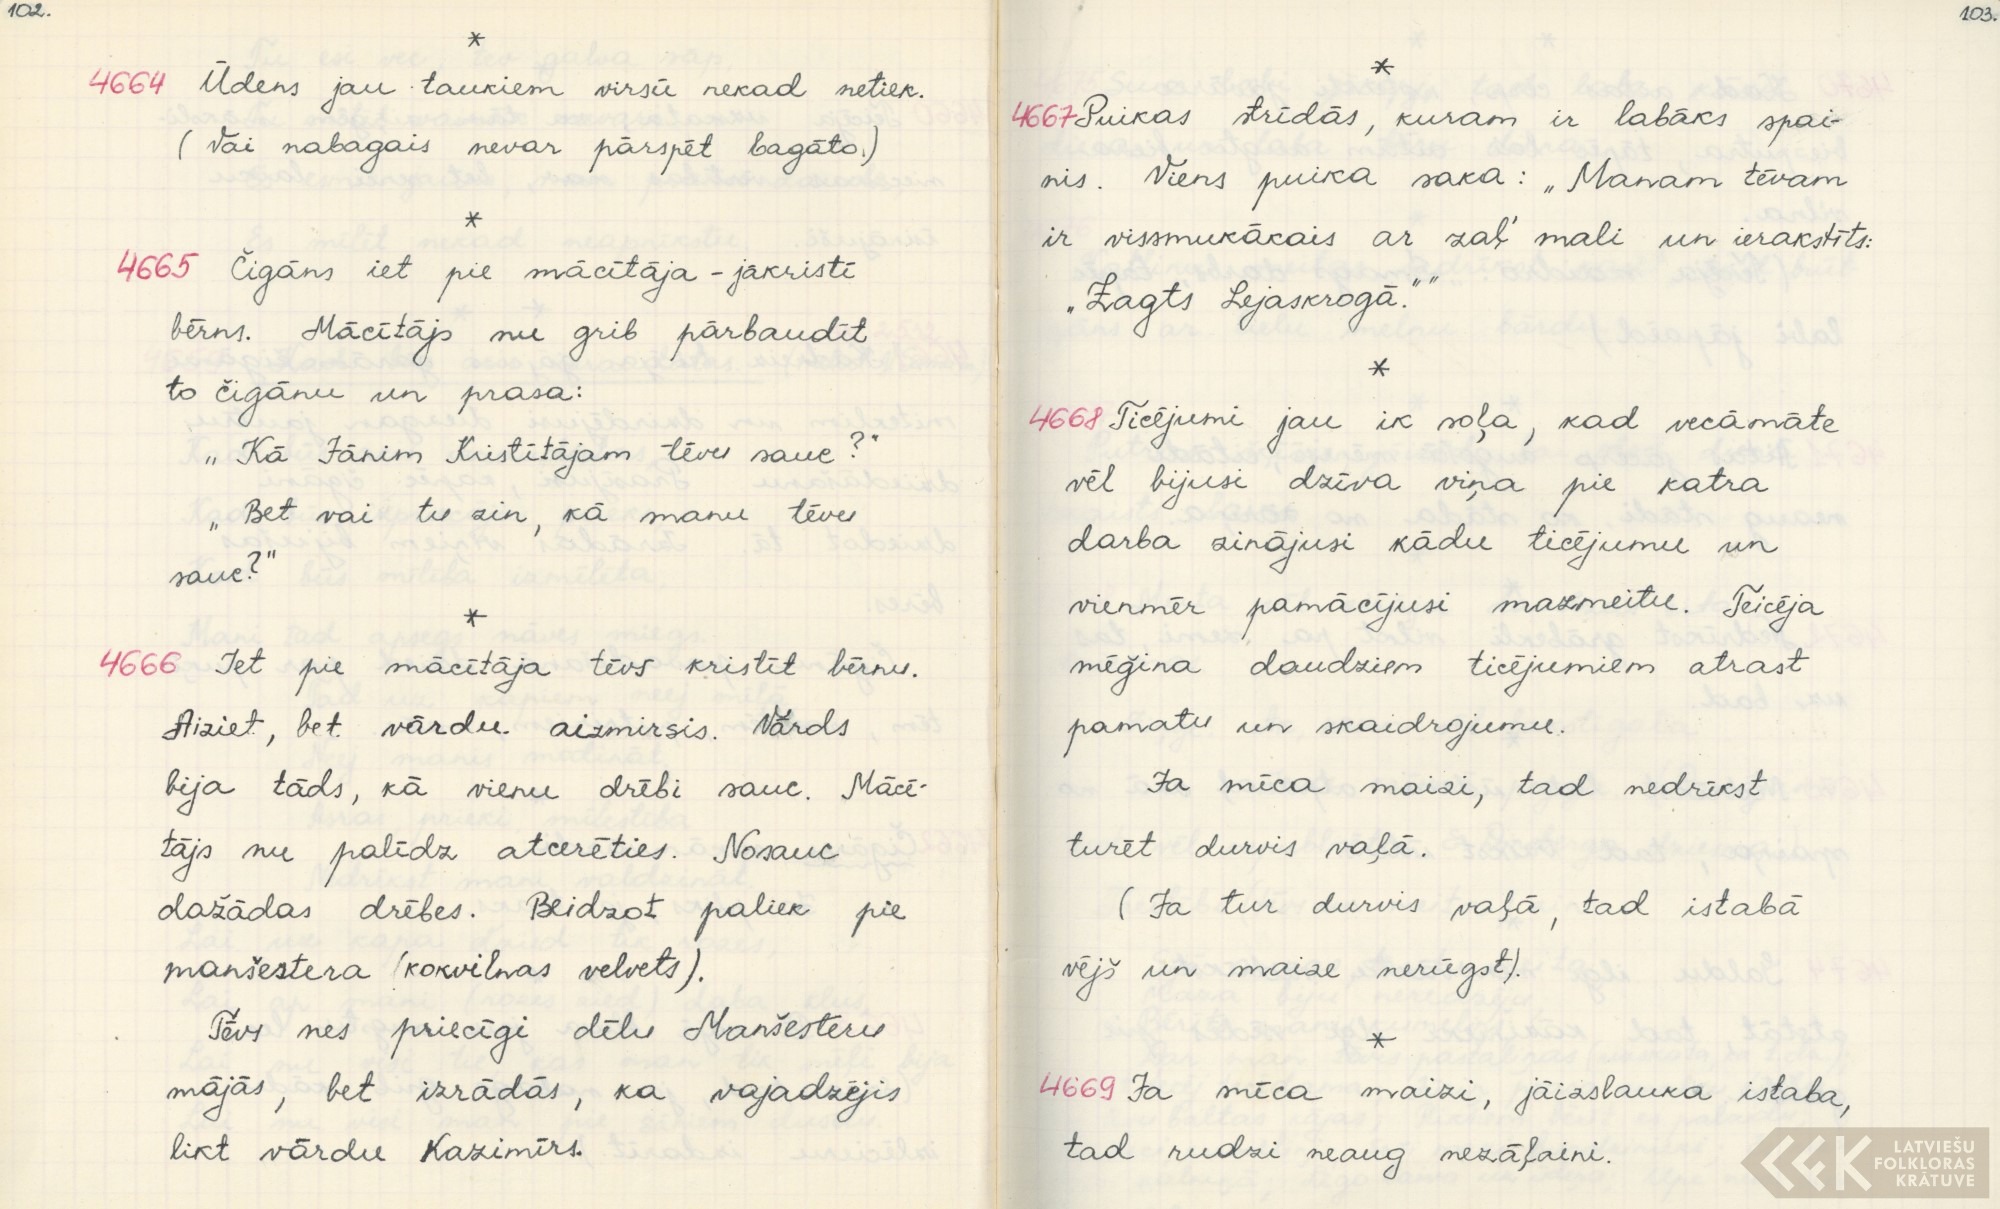 102.
*
4664 Ūdens jau taukiem virsū nekad netiek.
(Vai nabagais nevar pārspēt bagāto.)
*
4665 Čigāns iet pie mācītāja - jākristī
bērns. Mācītājs nu grib pārbaudīt
to čigānu un prasa:
„Kā Jānim Kristītājam tēvu sauc?"
„Bet vai tu zin, kā manu tēvu
sauc?"
*
4666 Iet pie mācītāja tēvs kristīt bērnu.
Aiziet, bet vārdu aizmirsis. Vārds
bija tāds, kā vienu drēbi sauc. Mācī-
tājs nu palīdz atcerēties. Nosauc
dažādas drēbes. Beidzot paliek pie
manšestera (kokvilnas velvets).
Tēvs nes priecīgi dēlu Manšesteru
mājās, bet izrādās, ka vajadzējis
likt vārdu Kazimīrs.
103.
*
4667 Puikas strīdās, kuram ir labāks spai-
nis. Viens puika saka: „Manam tēvam
ir vissmukākais ar zaļ' mali un ierakstīts:
„Zagts Lejaskrogā.""
*
4668 Ticējumi jau ik soļa, kad vecāmāte
vēl bijusi dzīva viņa pie katra
darba zinājusi kādu ticējumu un
vienmēr pamācījusi mazmeitu. Teicēja
mēģina daudziem ticējumiem atrast
pamatu un skaidrojumu.
Ja mīca maizi, tad nedrīkst
turēt durvis vaļā.
(Ja tur durvis vaļā, tad istabā
vējš un maize nerūgst).
*
4669 Ja mīca maizi, jāizslauka istaba,
tad rudzi neaug nezāļaini.
LATVIEŠU
FOLKLORAS
KRĀTUVE